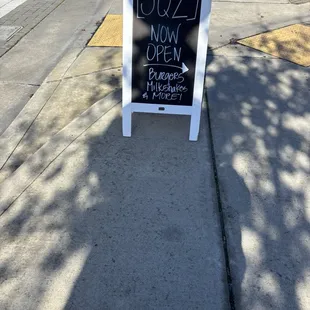 [JQZ]
NOW
OPEN
BURGERS
Milkshakes
& MORE!